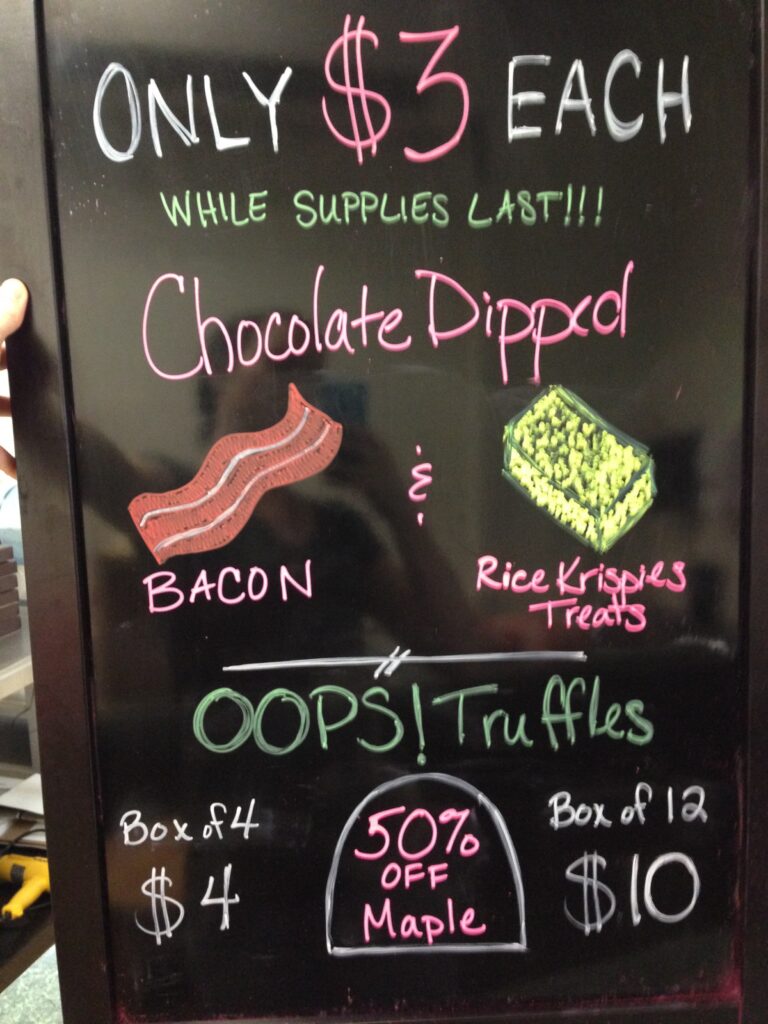 ONLY $3 EACH
WHILE SUPPLIES LAST!!!
Chocolate Dipped
BACON
&
Rice Krispies
Treats
OOPS! Truffles
Box of 4
$4
50%
OFF
Maple
Box of 12
$10